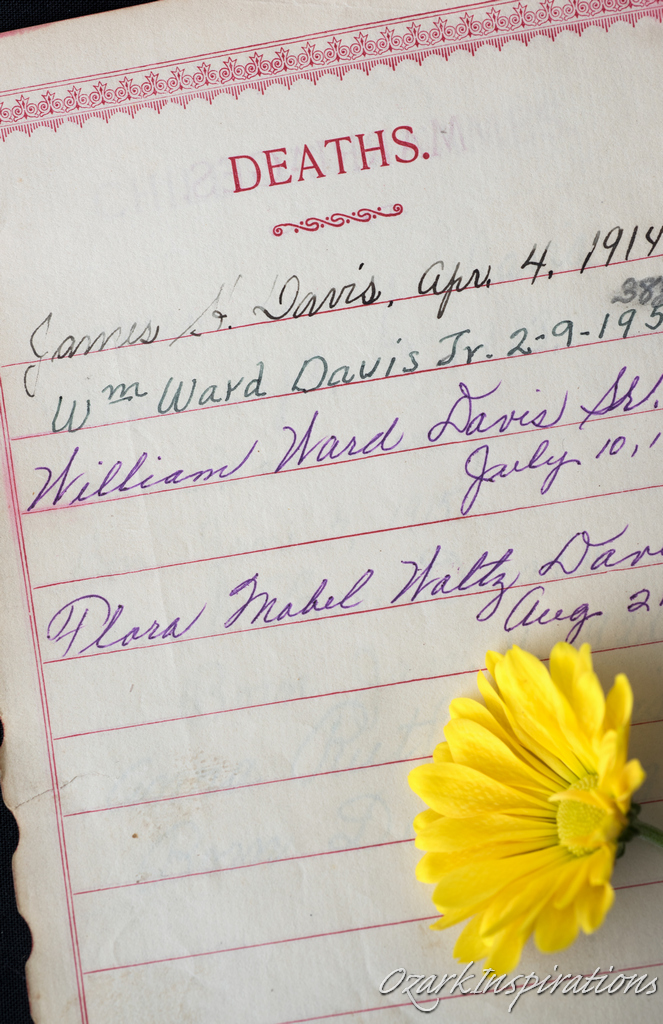 DEATHS.
James H. Davis, Apr. 4, 1914
38
Wm Ward Davis Jr. 2-9-195
William Ward Davis Sr.
July 10, 1
Flora Mabel Waltz Davi
Aug 2
OzarkInspirations